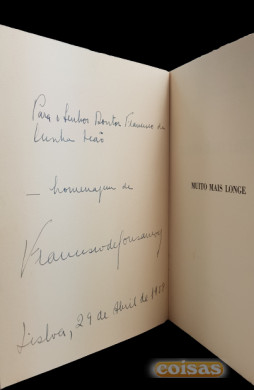 Para o Senhor Doutor Francisco da
Cunha Leão
— homenagem de
Lisboa, 29 de Abril de
MUITO MAIS LONGE
coisas